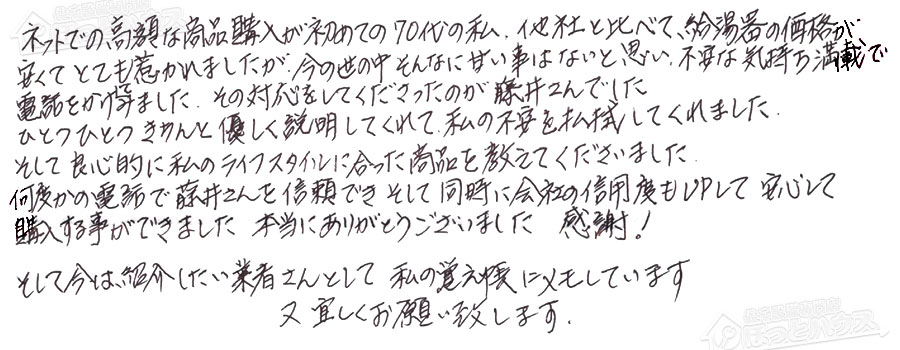 ネットでの高額な商品購入が初めての70代の私、他社と比べて、給湯器の価格が
安くてとても惹かれましたが、今の世の中そんなに甘い事はないと思い、不安な気持ち満載で
電話をかけました。その対応をしてくださったのが藤井さんでした
ひとつひとつきちんと優しく説明してくれて、私の不安を払拭してくれました。
そして良心的に私のライフスタイルに合った商品を教えてくださいました。
何度かの電話で藤井さんを信頼できそして同時に会社の信用度もUPして安心して
購入する事ができました 本当にありがとうございました 感謝!
そして今は、紹介したい業者さんとして 私の覚え帳にメモしています
又宜しくお願い致します。